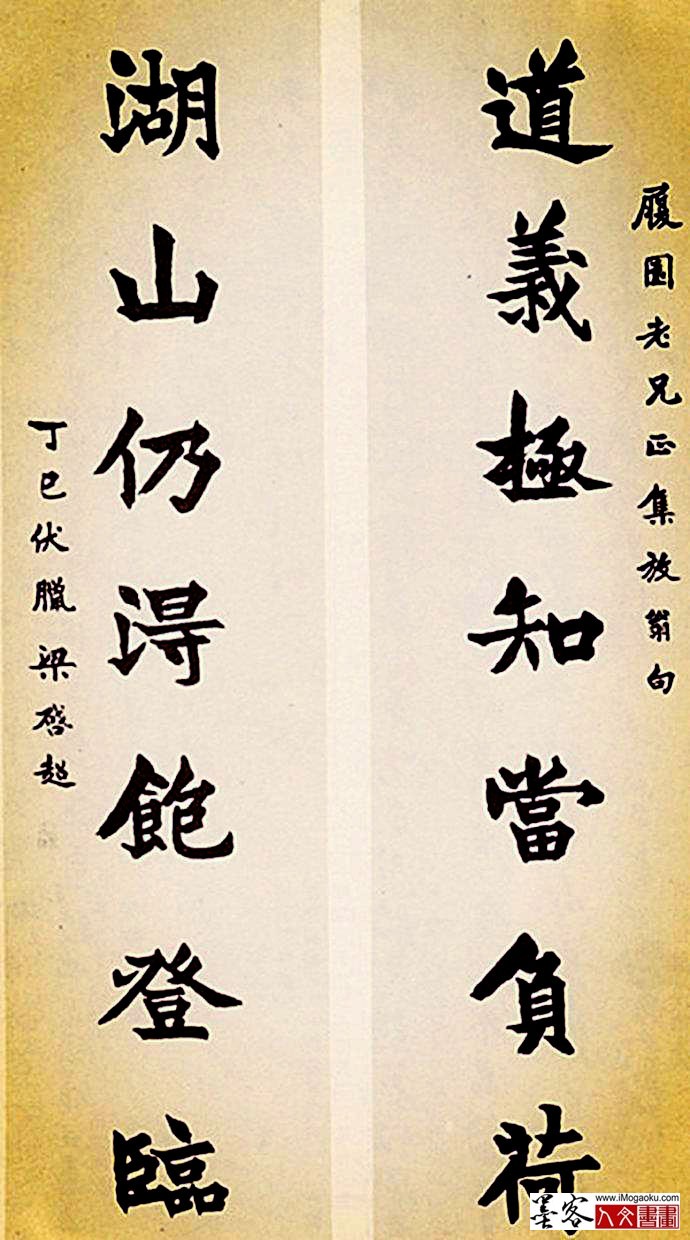 道義極知當負荷
履園老兄正集放翁句
湖山仍得飽登臨
丁巳伏臘梁啓超
www.iMogaoku.com
墨客人文書畫